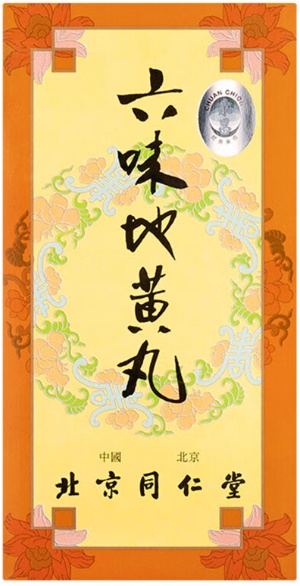 六味地黄丸
CHUAN CHIONG
中國 北京
北京同仁堂